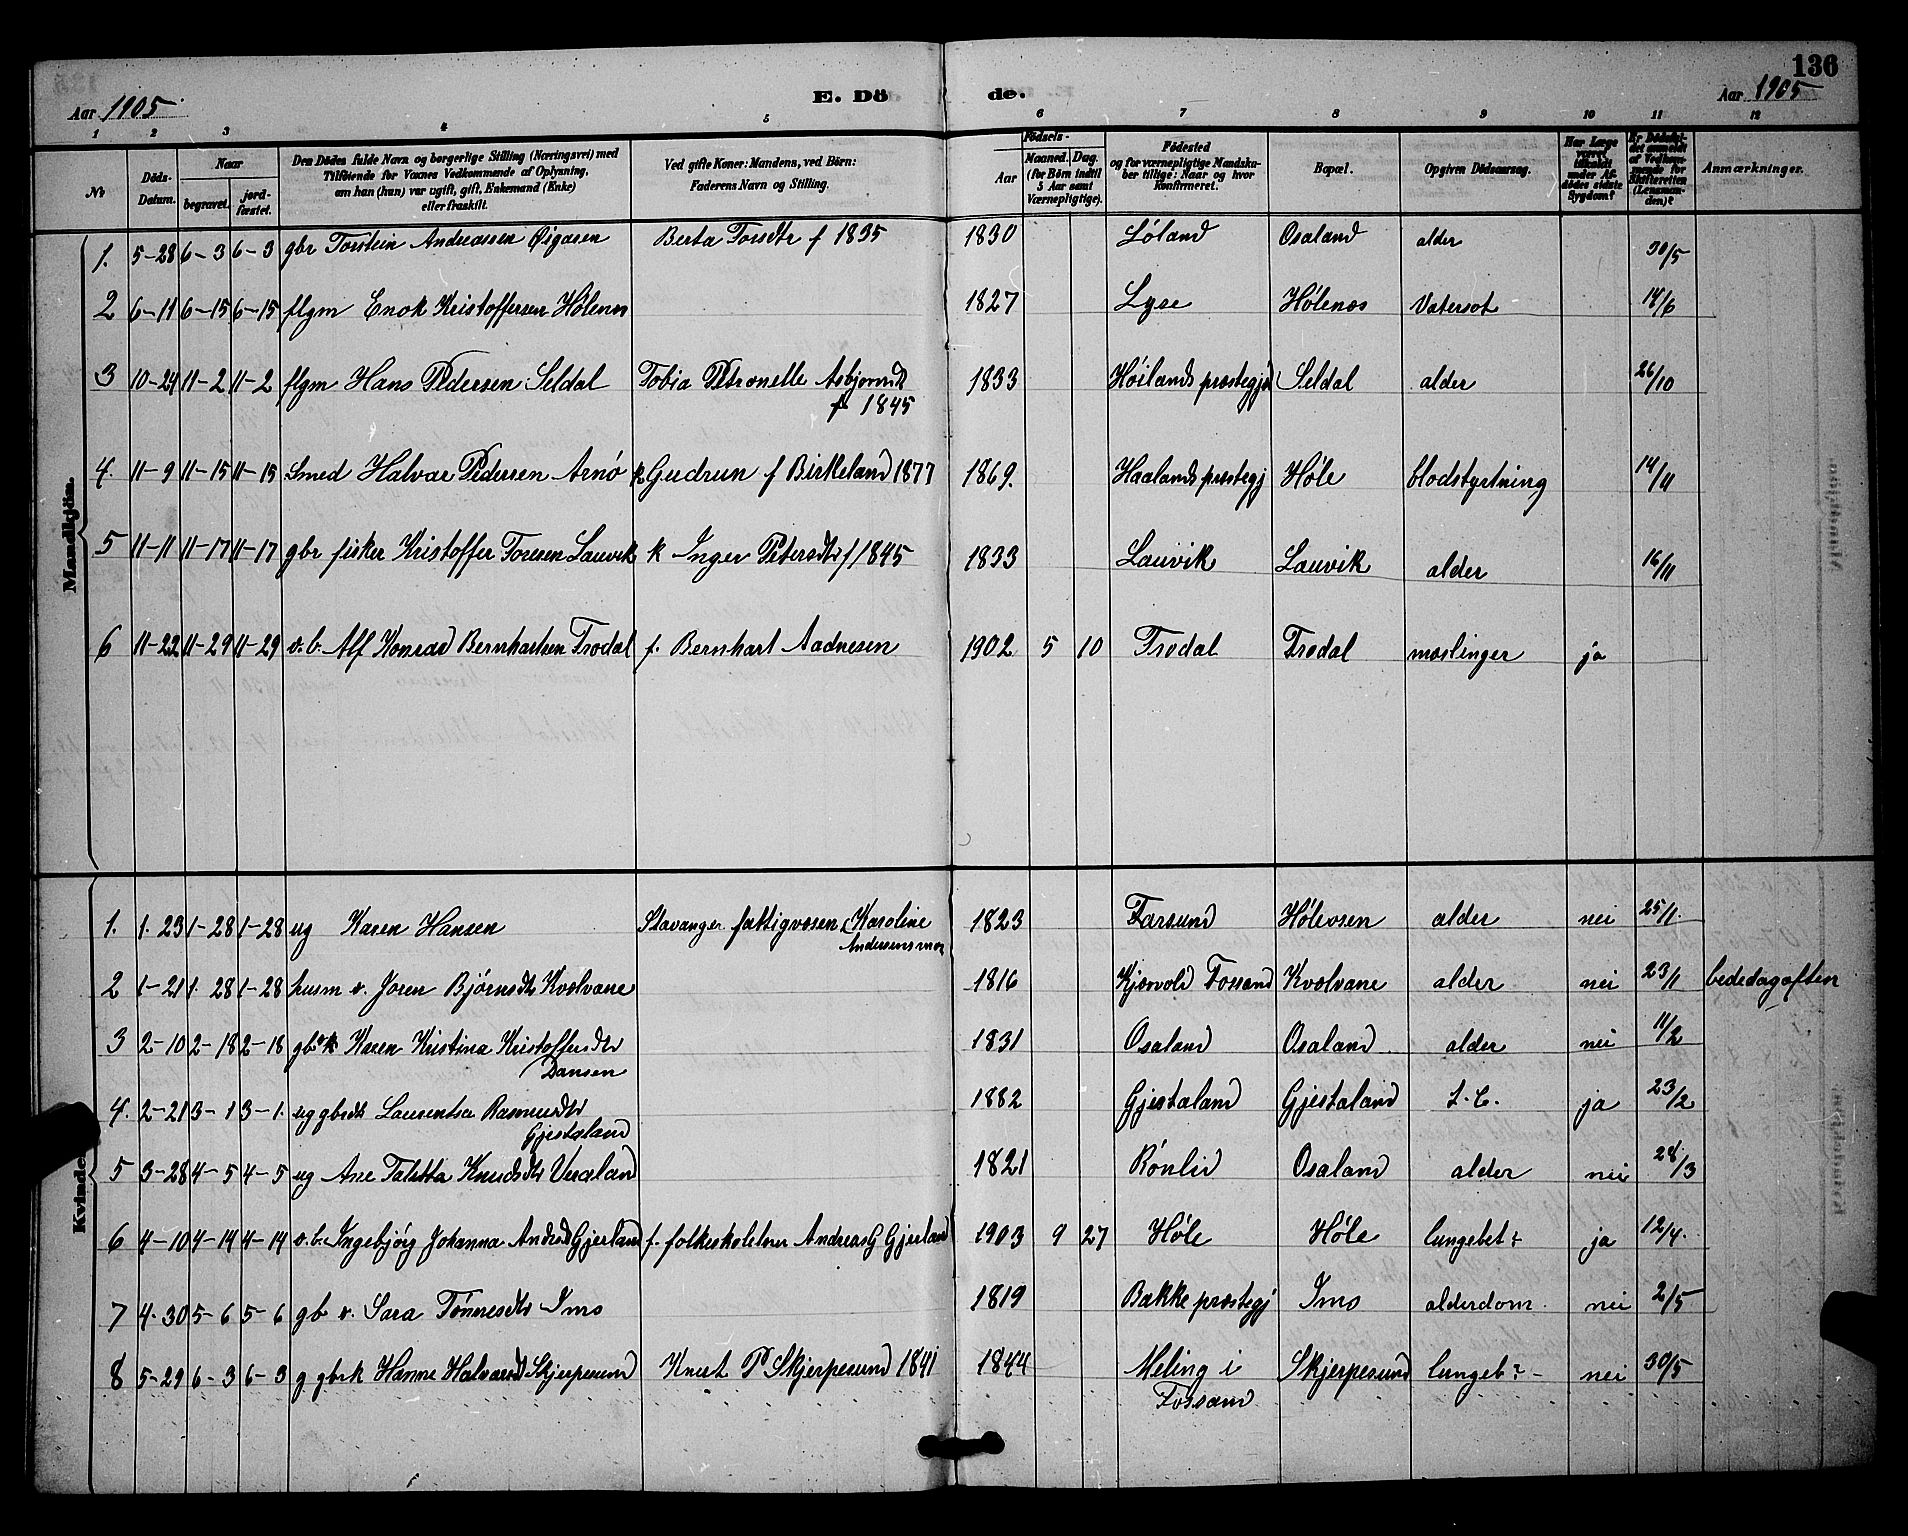 136
Aar 1905.
E. Dö de.
Aar 1905
1 2 3 4 5 6 7 8 9 10 11 12
№ Döds-Datum. Naar begravet. jordfæstet. Den Dödes fulde Navn og borgerlige Stilling (Næringsvei) med Tilföiende for Voxnes Vedkommende af Oplysning, om han (hun) var ugift, gift, Enkemand (Enke) eller fraskilt. Ved gifte Koner: Mandens, ved Börn: Faderens Navn og Stilling. Födsels- Aar Maaned. Dag. (for Börn indtil 5 Aar samt Værnepligtige). Födested og for værnepligtige Mandskaber tillige: Naar og hvor Konfirmeret. Bopæl. Opgiven Dödsaarsag. Har Læge været tilkaldt under Afdödes sidste Sygdom? Er Dödsfaldet anmeldt af Vedkommende for Skifteretten (Lensmanden)? Anmærkninger.
Mandkjön.
1. 5-28 6-3 6-3 gbr Torstein Andreassen Øigaren Berta Torsdtr f 1835 1830 Løland Osaland alder 30/5
2 6-11 6-15 6-15 flgm Enok Kristoffersen Hølenes 1827 Lyse Hølenes Vatersot 14/6
3 10-24 11-2 11-2 flgm Hans Pedersen Seldal Tobia Petronelle Asbjornsdt 1833 Høilands præstegj Seldal alder 26/10
f 1845
4. 11-9 11-15 11-15 Smed Halvar Pedersen Arnø k Gudrun f Birkeland 1877 1869. Haalands præstegj Høle blodstyrtning 14/11
5 11-11 11-17 11-17 gbr fisker Kristoffer Toresen Lauvik k Inger Petersdtr f 1845 1833 Lauvik Lauvik alder 16/11
6 11-22 11-29 11-29 v.b. Alf Konrad Bernhartsen Trodal f. Bernhart Aadnesen 1902 5 10 Trodal Trodal mæslinger ja
Kvindekjön.
1. 1-23 1-28 1-28 ug Karen Hansen Stavanger fattigvæsen, Karoline 1823 Farsund Hølevsen alder nei 25/1.
Andersens mor
2 1-21 1-28 1-28 husm e. Joren Bjørnsdtr Kvolvane 1816 Kjosvold Fossand Kvolvane alder nei 23/1 bededagaften
3 2-10 2-18 2-18 gbrk Karen Kristina Kristoffersdtr 1831 Osaland Osaland alder nei 11/2
Dansen
4. 2-21 3-1 3-1. ug gbrdt Laurentsa Rasmusdtr 1882 Gjestaland Gjestaland L.C. ja 23/2
Gjestaland
5 3-28 4-5 4-5 ug Ane Taletta Knudsdtr Veraland 1821 Rønlid Osaland alder nei 28/3
6 4-10 4-14 4-14 v.b. Ingebjørg Johanna Andrsd Gjerland f. folkeskolelærer Andreas G Gjerland 1903 9 27 Høle Høle lungebet: ja 12/4.
7 4-30 5-6 5-6 gb e. Sara Tønnesdtr Ims 1819 Bakke præstegj Ims alderdom nei 2/5
8 5-29 6-3 6-3 g gbrk Hanne Halvarsd Skjerpesund Knut P Skjerpesund 1841 1844 Meling i Skjerpesund lungeb: nei 30/5
Fossand